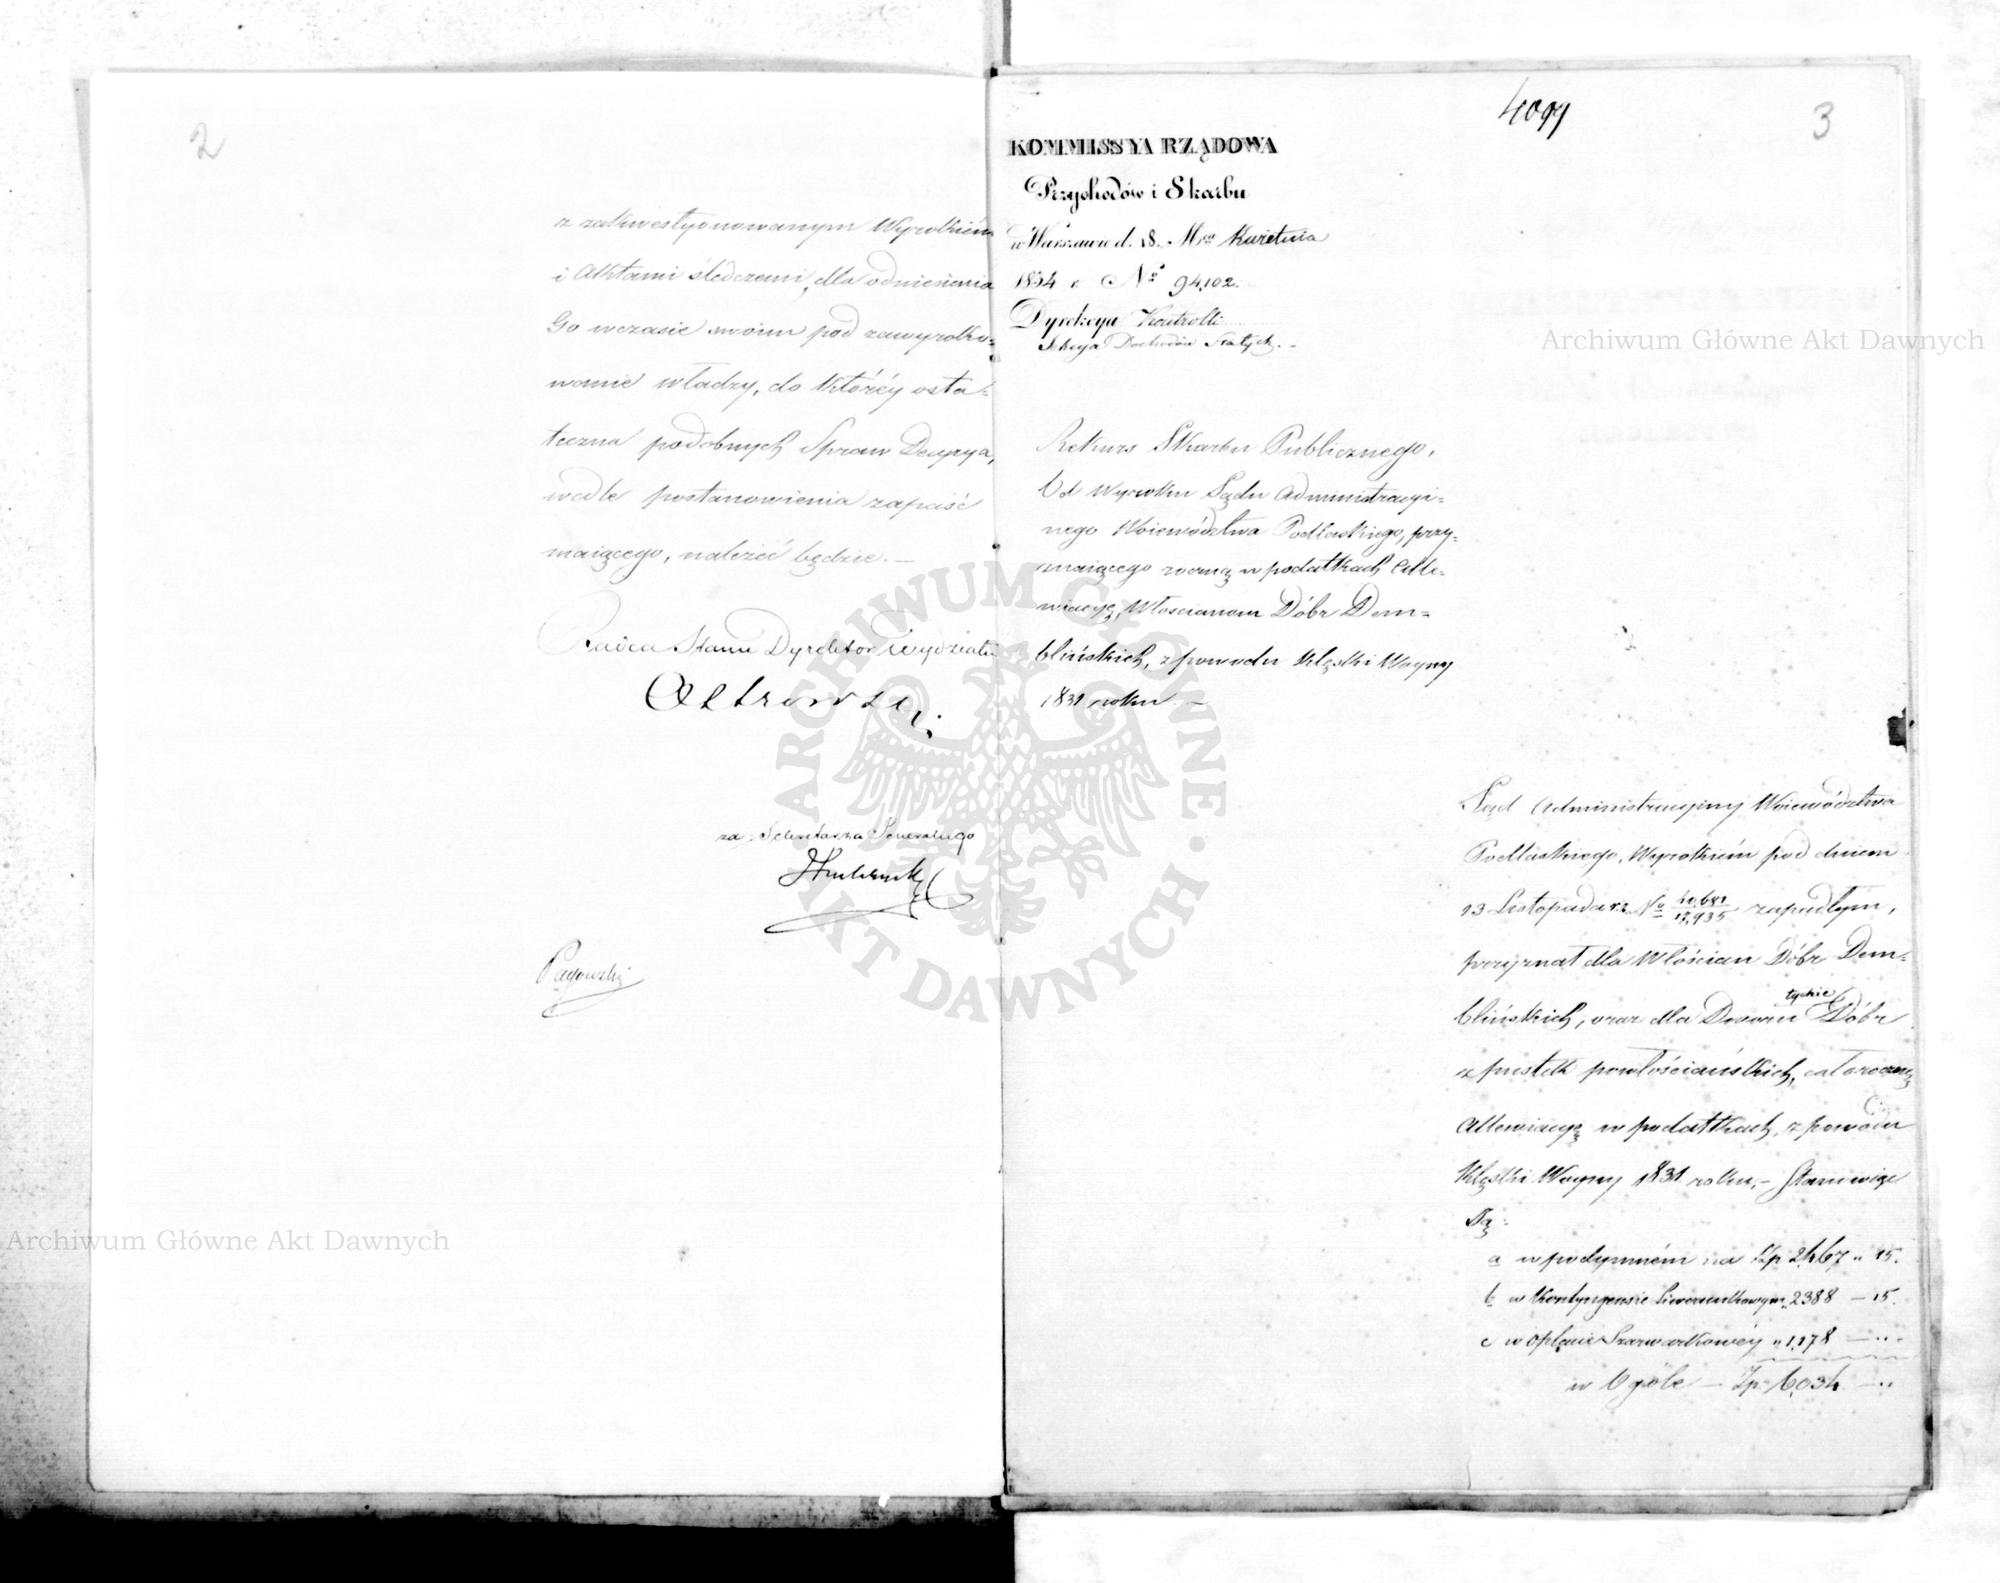 2
z zakwestyonowanym Wyrokiem
i Aktami śledczemi, dla odniesienia
Go wczasie swoim pod zawyroko-
wanie władzy, do któréy osta-
teczna podobnych Spraw Decyzya,
wedle postanowienia zapaść
maiącego, należéć będzie. —
Radca Stanu Dyrektor Wydziału
za Sekretarza Jeneralnego
4099
3
KOMMISSYA RZĄDOWA
Przychodów i Skarbu
w Warszawie d. 18. Mca Kwietnia
1834 r. No 94,102.
Dyrekcya Kontrolli
Sekcya Dochodów Stałych. -
Rekurs Skarbu Publicznego,
Od Wyroku Sądu Administracyi=
nego Województwa Podlaskiego, przy=
znaiącego roczną w podatkach Alle=
wiacyę, Włoscianom Dóbr Dem=
blińskich, z powodu klęski Woyny
1831 roku —
Sąd Administracyiny Województwa
Podlaskiego, Wyrokiem pod dniem
13 Listopada r.z. No 40,681/17,935 zapadłym,
przyznał dla Włościan Dóbr Dem=
blińskich, oraz dla Dworu tychże Dóbr
z pustek powłościańskich, całoroczną
Allewiacyę w podatkach, z powodu
klęski Woyny 1831 roku, — Stanowiąc
Ją:
a w podymném na Zp 2467 " 15.
b w Kontyngensie Liwerunkowym " 2388 — 15.
c w Opłacie Szarwarkowéy " 1,178 — ..
w Ogóle — Zp 6,034 — ..
Archiwum Główne Akt Dawnych
Archiwum Główne Akt Dawnych
ARCHIWUM GŁÓWNE · AKT DAWNYCH ·